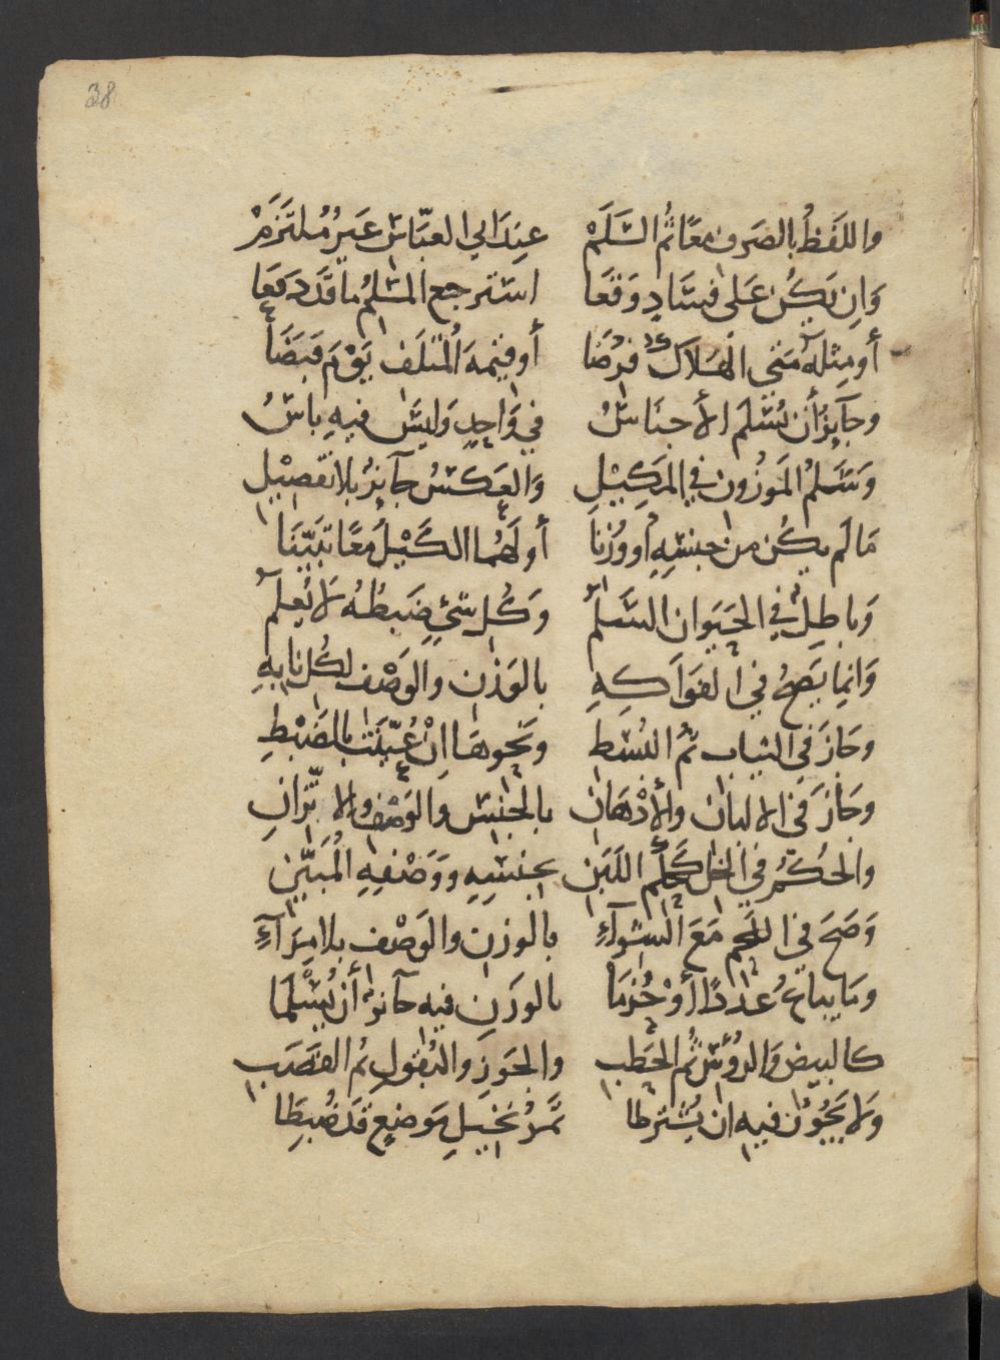 38
واللَفظُ بالصَرفِ معًا ثُم السَّلَمْ عِندَ ابي العبّاسِ غيرُ مُلتَزَمْ
وَاِن يَكُن عَلى فَسَادٍ وَقَعَا استرجع المُسلِمُ ما قَد دَفَعَا
أو مِثلهُ مَتى الهَلاك فُرِضَا أو قيمةَ المُتلَف يَوْمَ قَبَضَا
وجَآيزٌ أن تُسْلَم الأجنَاسُ في وَاحِدٍ وَليسَ فيهِ باسُ
وَيُسْلَمُ المَوزُون في المَكِيْلِ وَالعَكسُ جآيزٌ بلا تفصِيْلِ
مَا لَم يكُن من جِنسِهِ أو وُزِنَا أو لَهُما الكَيْلُ مَعًا تَبَيَّنَا
وَباطِلٌ في الحَيَوان السَّلَمُ وَكُل شيءٍ ضَبطُهُ لا يُعلَمُ
وَانما يَصحُ في الفَوَاكهِ بالوَزْنِ والوَصْف لِكُل نابهِ
وجَازَ في الثياب ثُم البُسْطِ ونَحْوهَا اِنْ عُيّنَت بالضَبْطِ
وجَازَ في الالبَان والأدْهَان بالجِنْسِ والوَصْف والاتّزانِ
والحُكمُ في الخل كَحُكم اللَبَن بجِنسِهِ وَوَصْفهِ المُبَيَّنِ
وَصَحَ في اللحم مَعَ الشوآءِ بالوزنِ والوَصْف بلا مِرَآءِ
ومَا يباعُ عددًا أوْ حُزَمَا بالوزَنِ فيه جآئزٌ أن يُسْلَمَا
كالبيض وَالروُس ثُم الحَطَبِ والجَوزِ والبُقولِ ثُم القصَبِ
وَلا يَجُوزُ فيهِ ان يُشترطا ثمَرُ نخيلِ مَوضعٍ قد ضُبِطَا